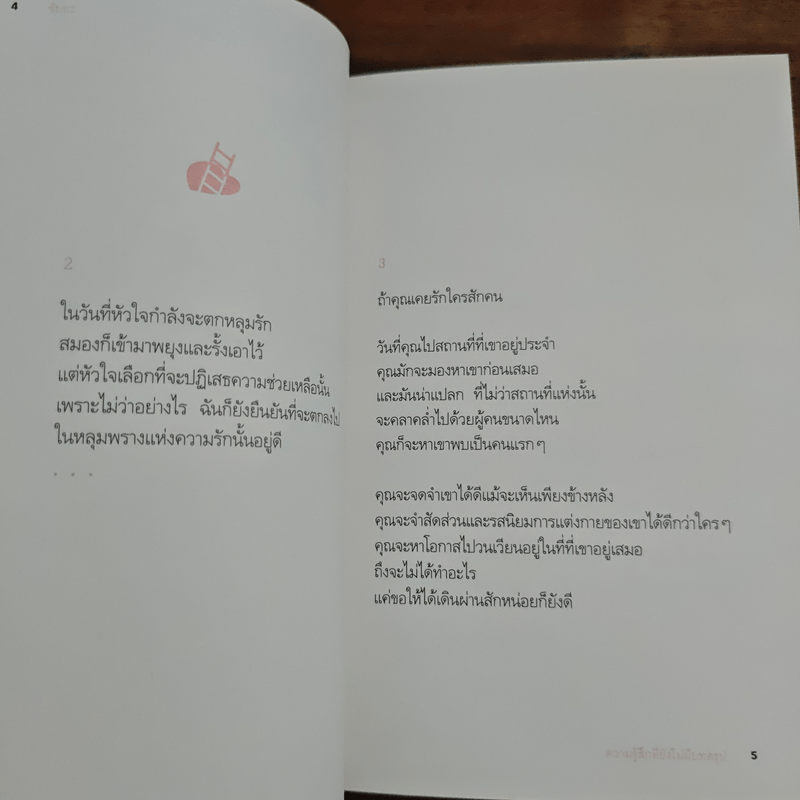 4
2
ในวันที่หัวใจกำลังจะตกหลุมรัก
สมองก็เข้ามาพยุงและรั้งเอาไว้
แต่หัวใจเลือกที่จะปฏิเสธความช่วยเหลือนั้น
เพราะไม่ว่าอย่างไร ฉันก็ยังยืนยันที่จะตกลงไป
ในหลุมพรางแห่งความรักนั้นอยู่ดี
• • •
3
ถ้าคุณเคยรักใครสักคน
วันที่คุณไปสถานที่ที่เขาอยู่ประจำ
คุณมักจะมองหาเขาก่อนเสมอ
และมันน่าแปลก ที่ไม่ว่าสถานที่แห่งนั้น
จะคลาคล่ำไปด้วยผู้คนขนาดไหน
คุณก็จะหาเขาพบเป็นคนแรกๆ
คุณจะจดจำเขาได้ดีแม้จะเห็นเพียงข้างหลัง
คุณจะจำสัดส่วนและรสนิยมการแต่งกายของเขาได้ดีกว่าใครๆ
คุณจะหาโอกาสไปวนเวียนอยู่ในที่ที่เขาอยู่เสมอ
ถึงจะไม่ได้ทำอะไร
แค่ขอให้ได้เดินผ่านสักหน่อยก็ยังดี
ความรู้สึกที่ยังไม่มีบทสรุป 5